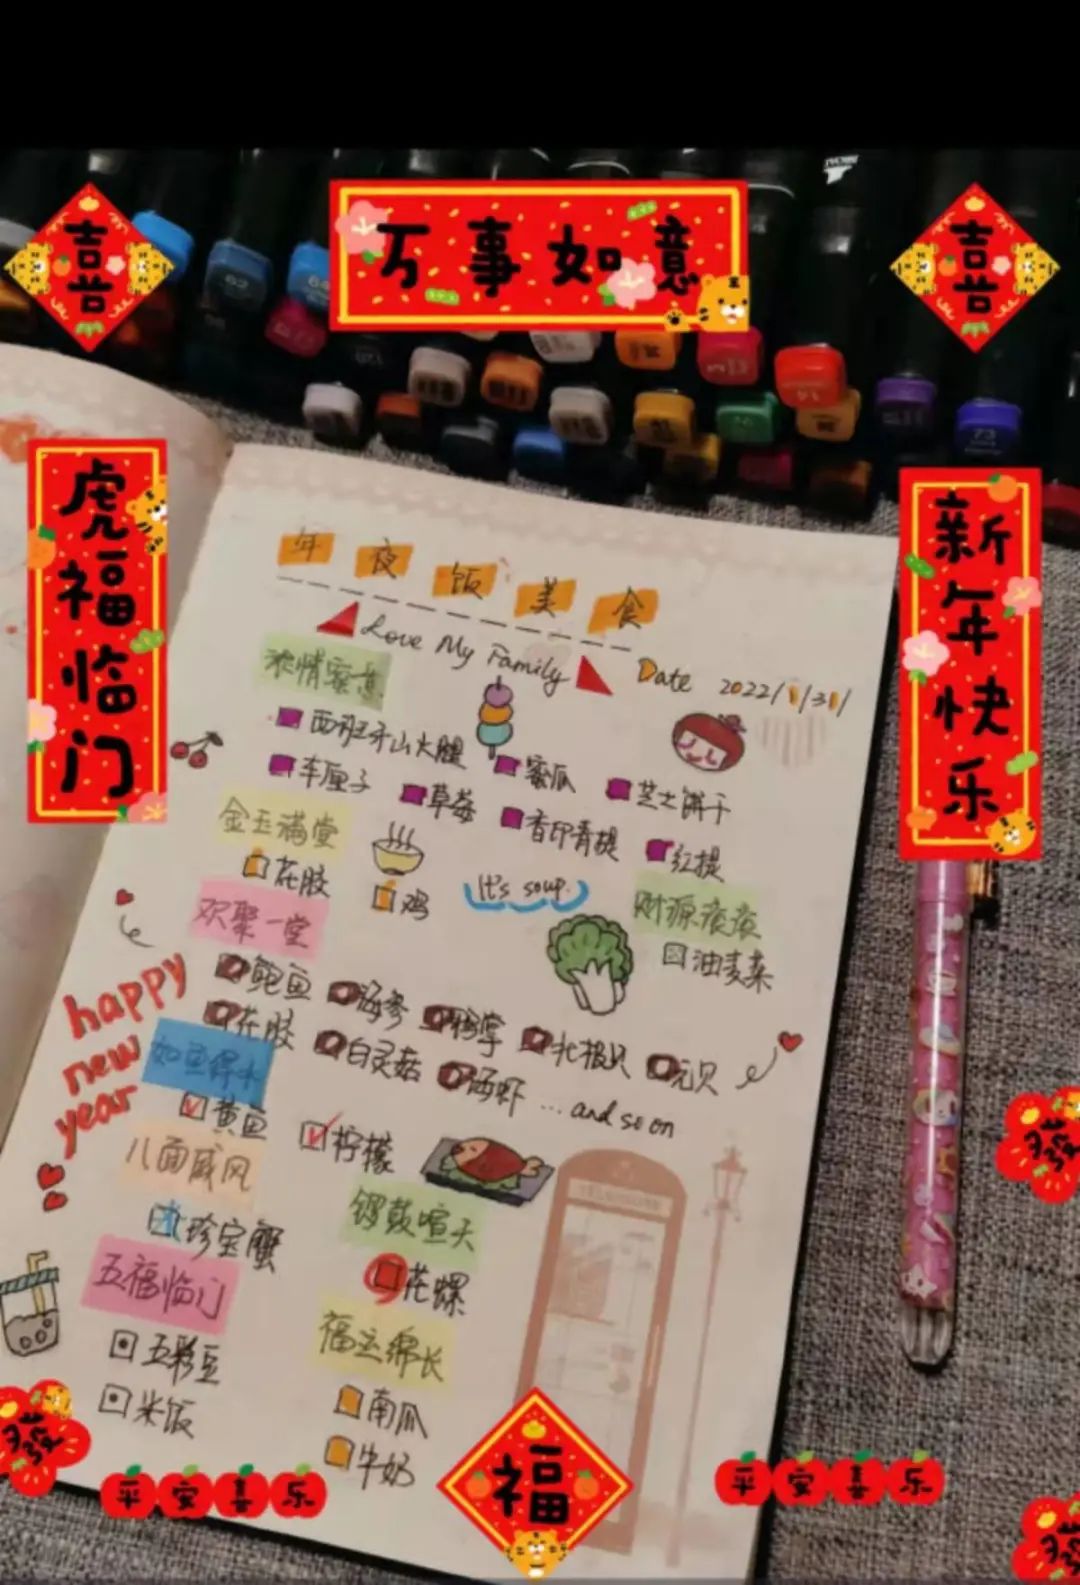 吉
万事如意
吉
虎福临门
新年快乐
年夜饭美食
Love My Family
Date 2022/1/31/
浓情蜜意
西班牙火腿
蜜瓜
芝士饼干
车厘子
草莓
香印青提
红提
金玉满堂
花胶
鸡
It's soup.
财源滚滚
油麦菜
欢聚一堂
鲍鱼
海参
鹅掌
北极贝
元贝
花胶
白灵菇
海虾
...and so on
happy
new
year
如鱼得水
黄鱼
柠檬
八面威风
珍宝蟹
锣鼓喧天
花螺
五福临门
五彩豆
米饭
福运绵长
南瓜
牛奶
發
發
發
平安喜乐
福
平安喜乐